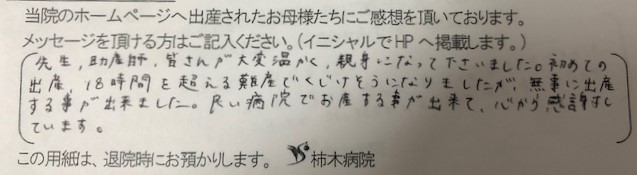 当院のホームページへ出産されたお母様たちにご感想を頂いております。
メッセージを頂ける方はご記入ください。(イニシャルでHPへ掲載します。)
先生,助産師,皆さんが大変温かく,親身になって下さいました。初めての
出産,18時間を超える難産でくじけそうになりましたが,無事に出産
する事が出来ました。良い病院でお産する事が出来て,心から感謝し
ています。
この用紙は、退院時にお預かりします。 柿木病院